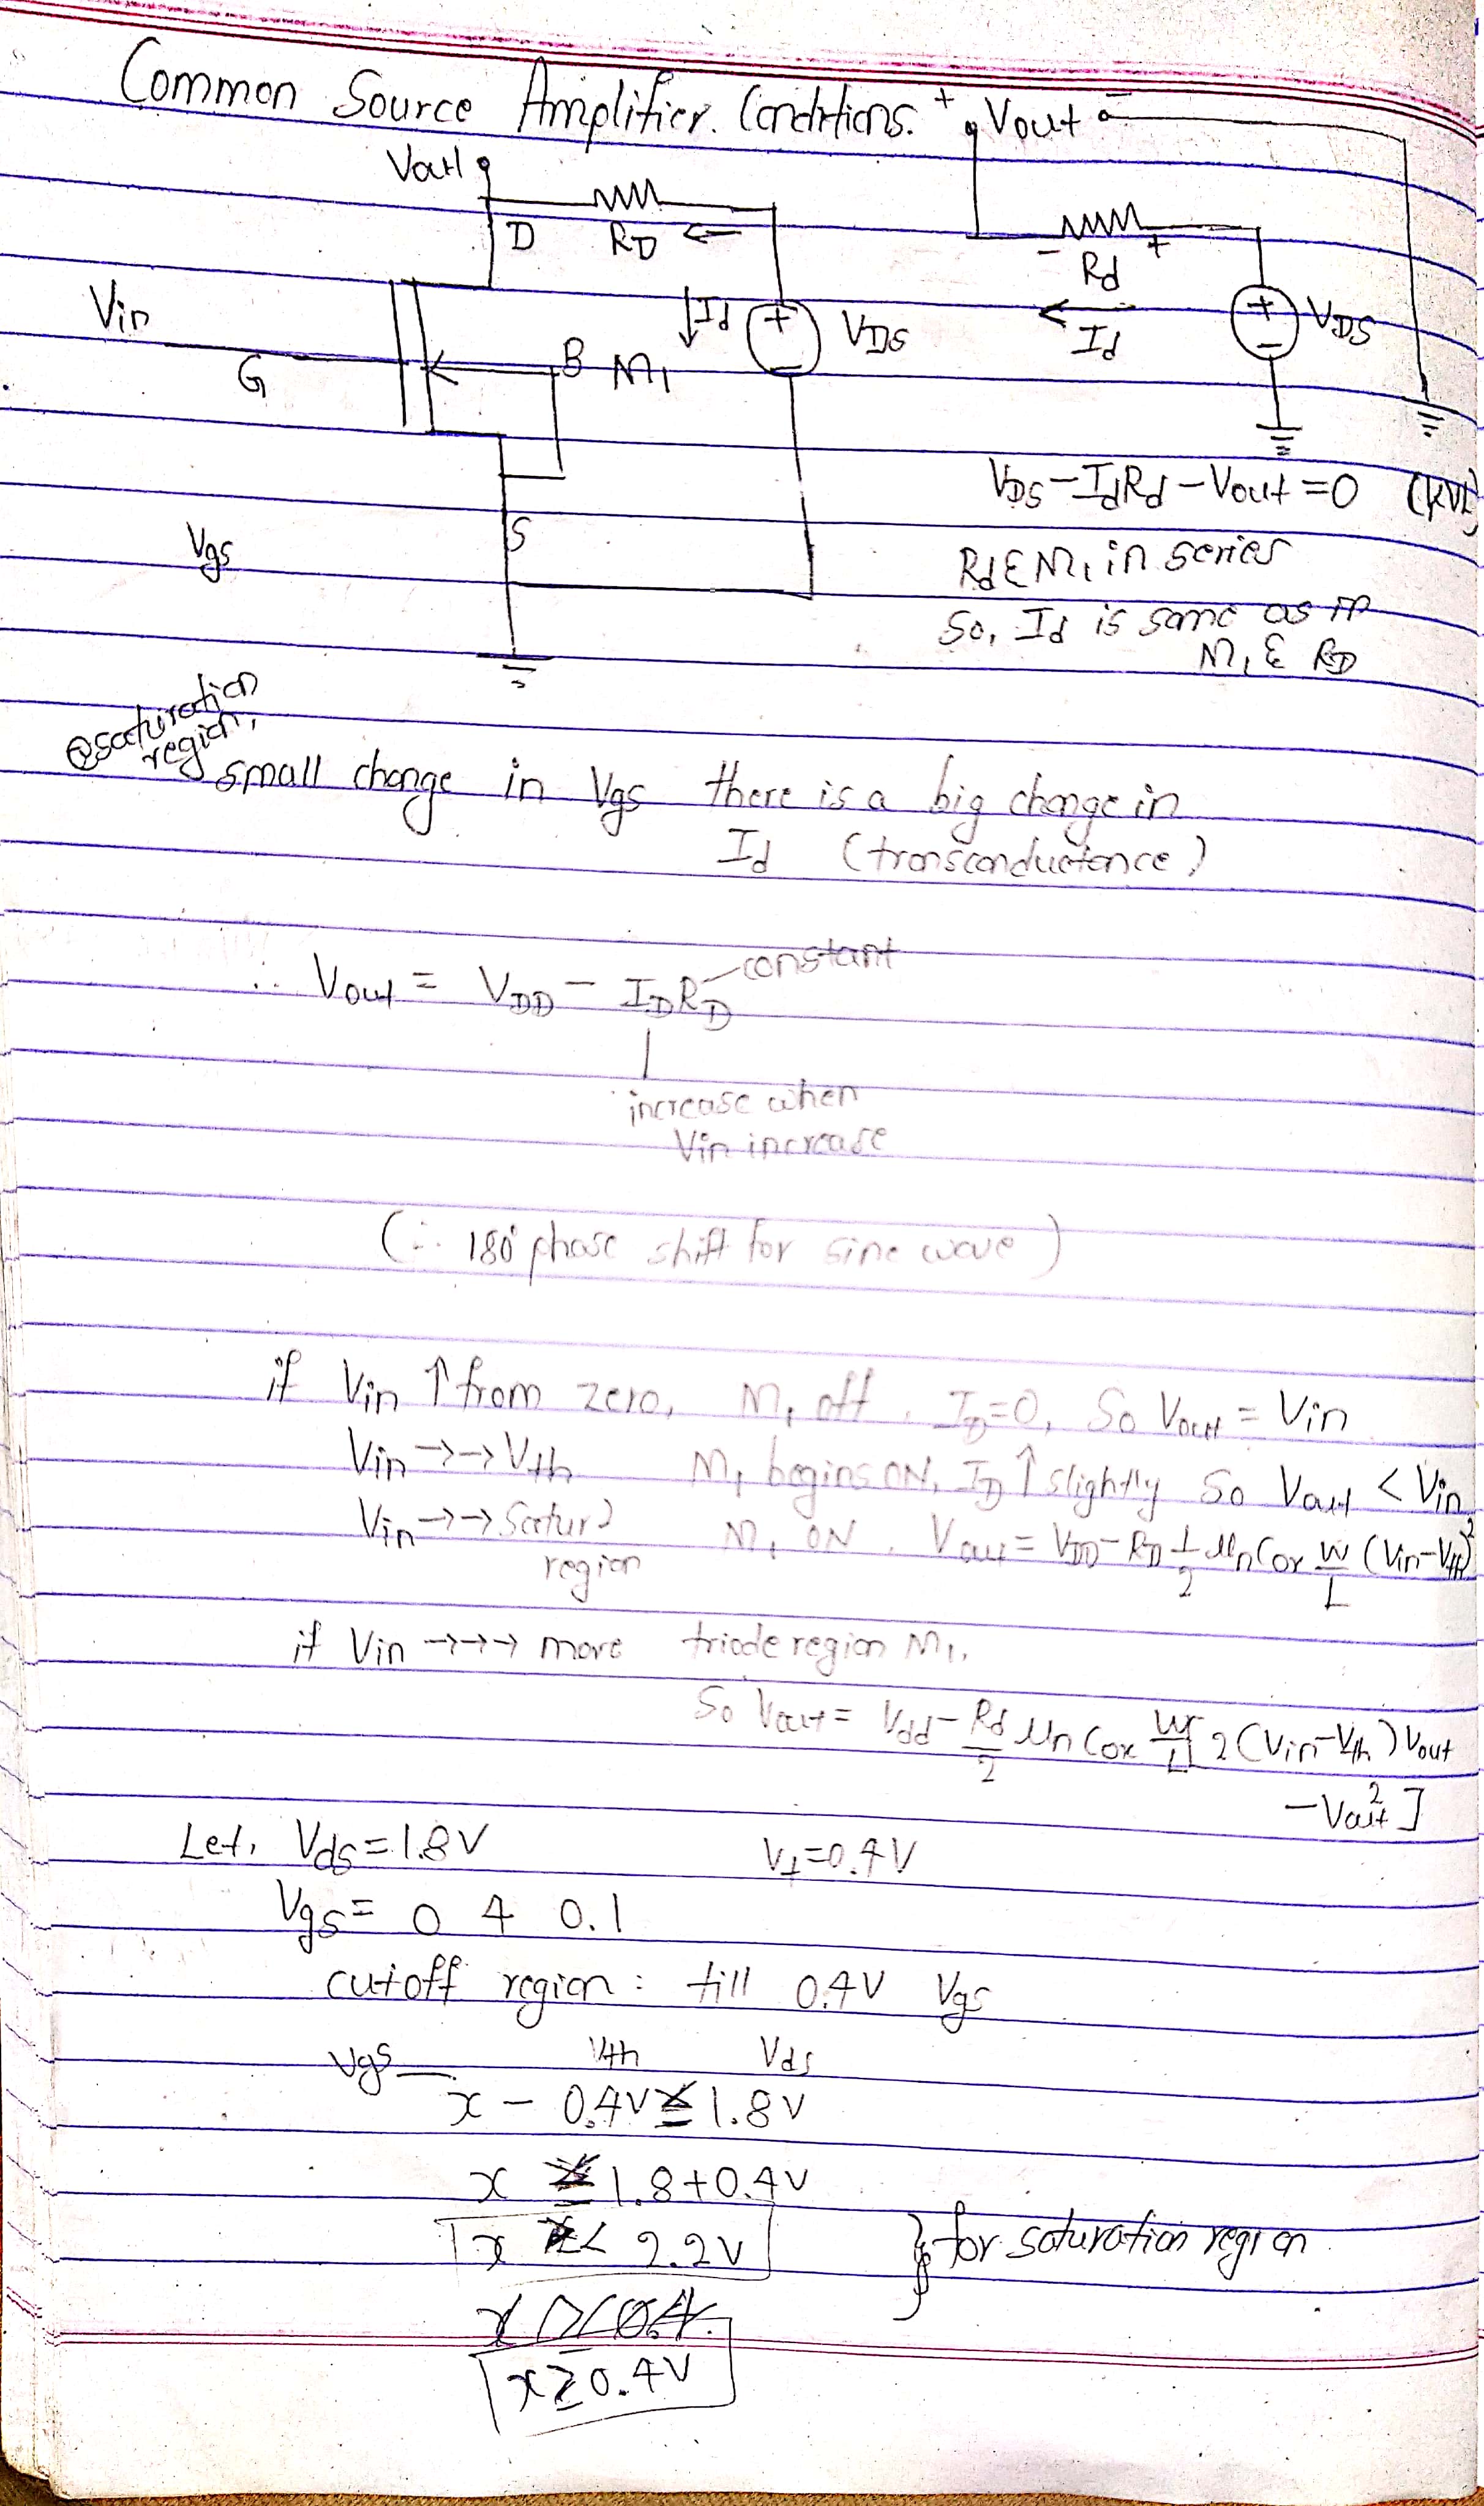 Common Source Amplifier. Conditions.
+ Vout -
Vout
D RD
Vin
G
B M1
Id
VDS
S
Vgs
- Rd +
Id
VDS
VDS - IdRd - Vout = 0 (KVL)
Rd & M1 in series
So, Id is same as in
M1 & RD
@saturation
region,
small change in Vgs there is a big change in
Id (transconductance)
∴ Vout = VDD - IDRD constant
increase when
Vin increase
(∴ 180° phase shift for sine wave)
if Vin ↑ from zero, M1 off. ID=0, So Vout = Vin
Vin →→ Vth M1 begins ON, ID ↑ slightly So Vout < Vin
Vin →→ Satur2 M1 ON. Vout = VDD - RD 1/2 μnCox W/L (Vin-Vth)²
region
if Vin →→→ more triode region M1,
So Vout = Vdd - Rd/2 μn Cox W/L [2(Vin-Vth) Vout
- Vout²]
Let, Vds = 1.8V V± = 0.4V
Vgs = 0 4 0.1
cutoff region : till 0.4V Vgs
Vgs - Vth Vds
x - 0.4V ≤ 1.8V
x ≤ 1.8+0.4V
x < 2.2V } for saturation region
x ≥ 0.4V